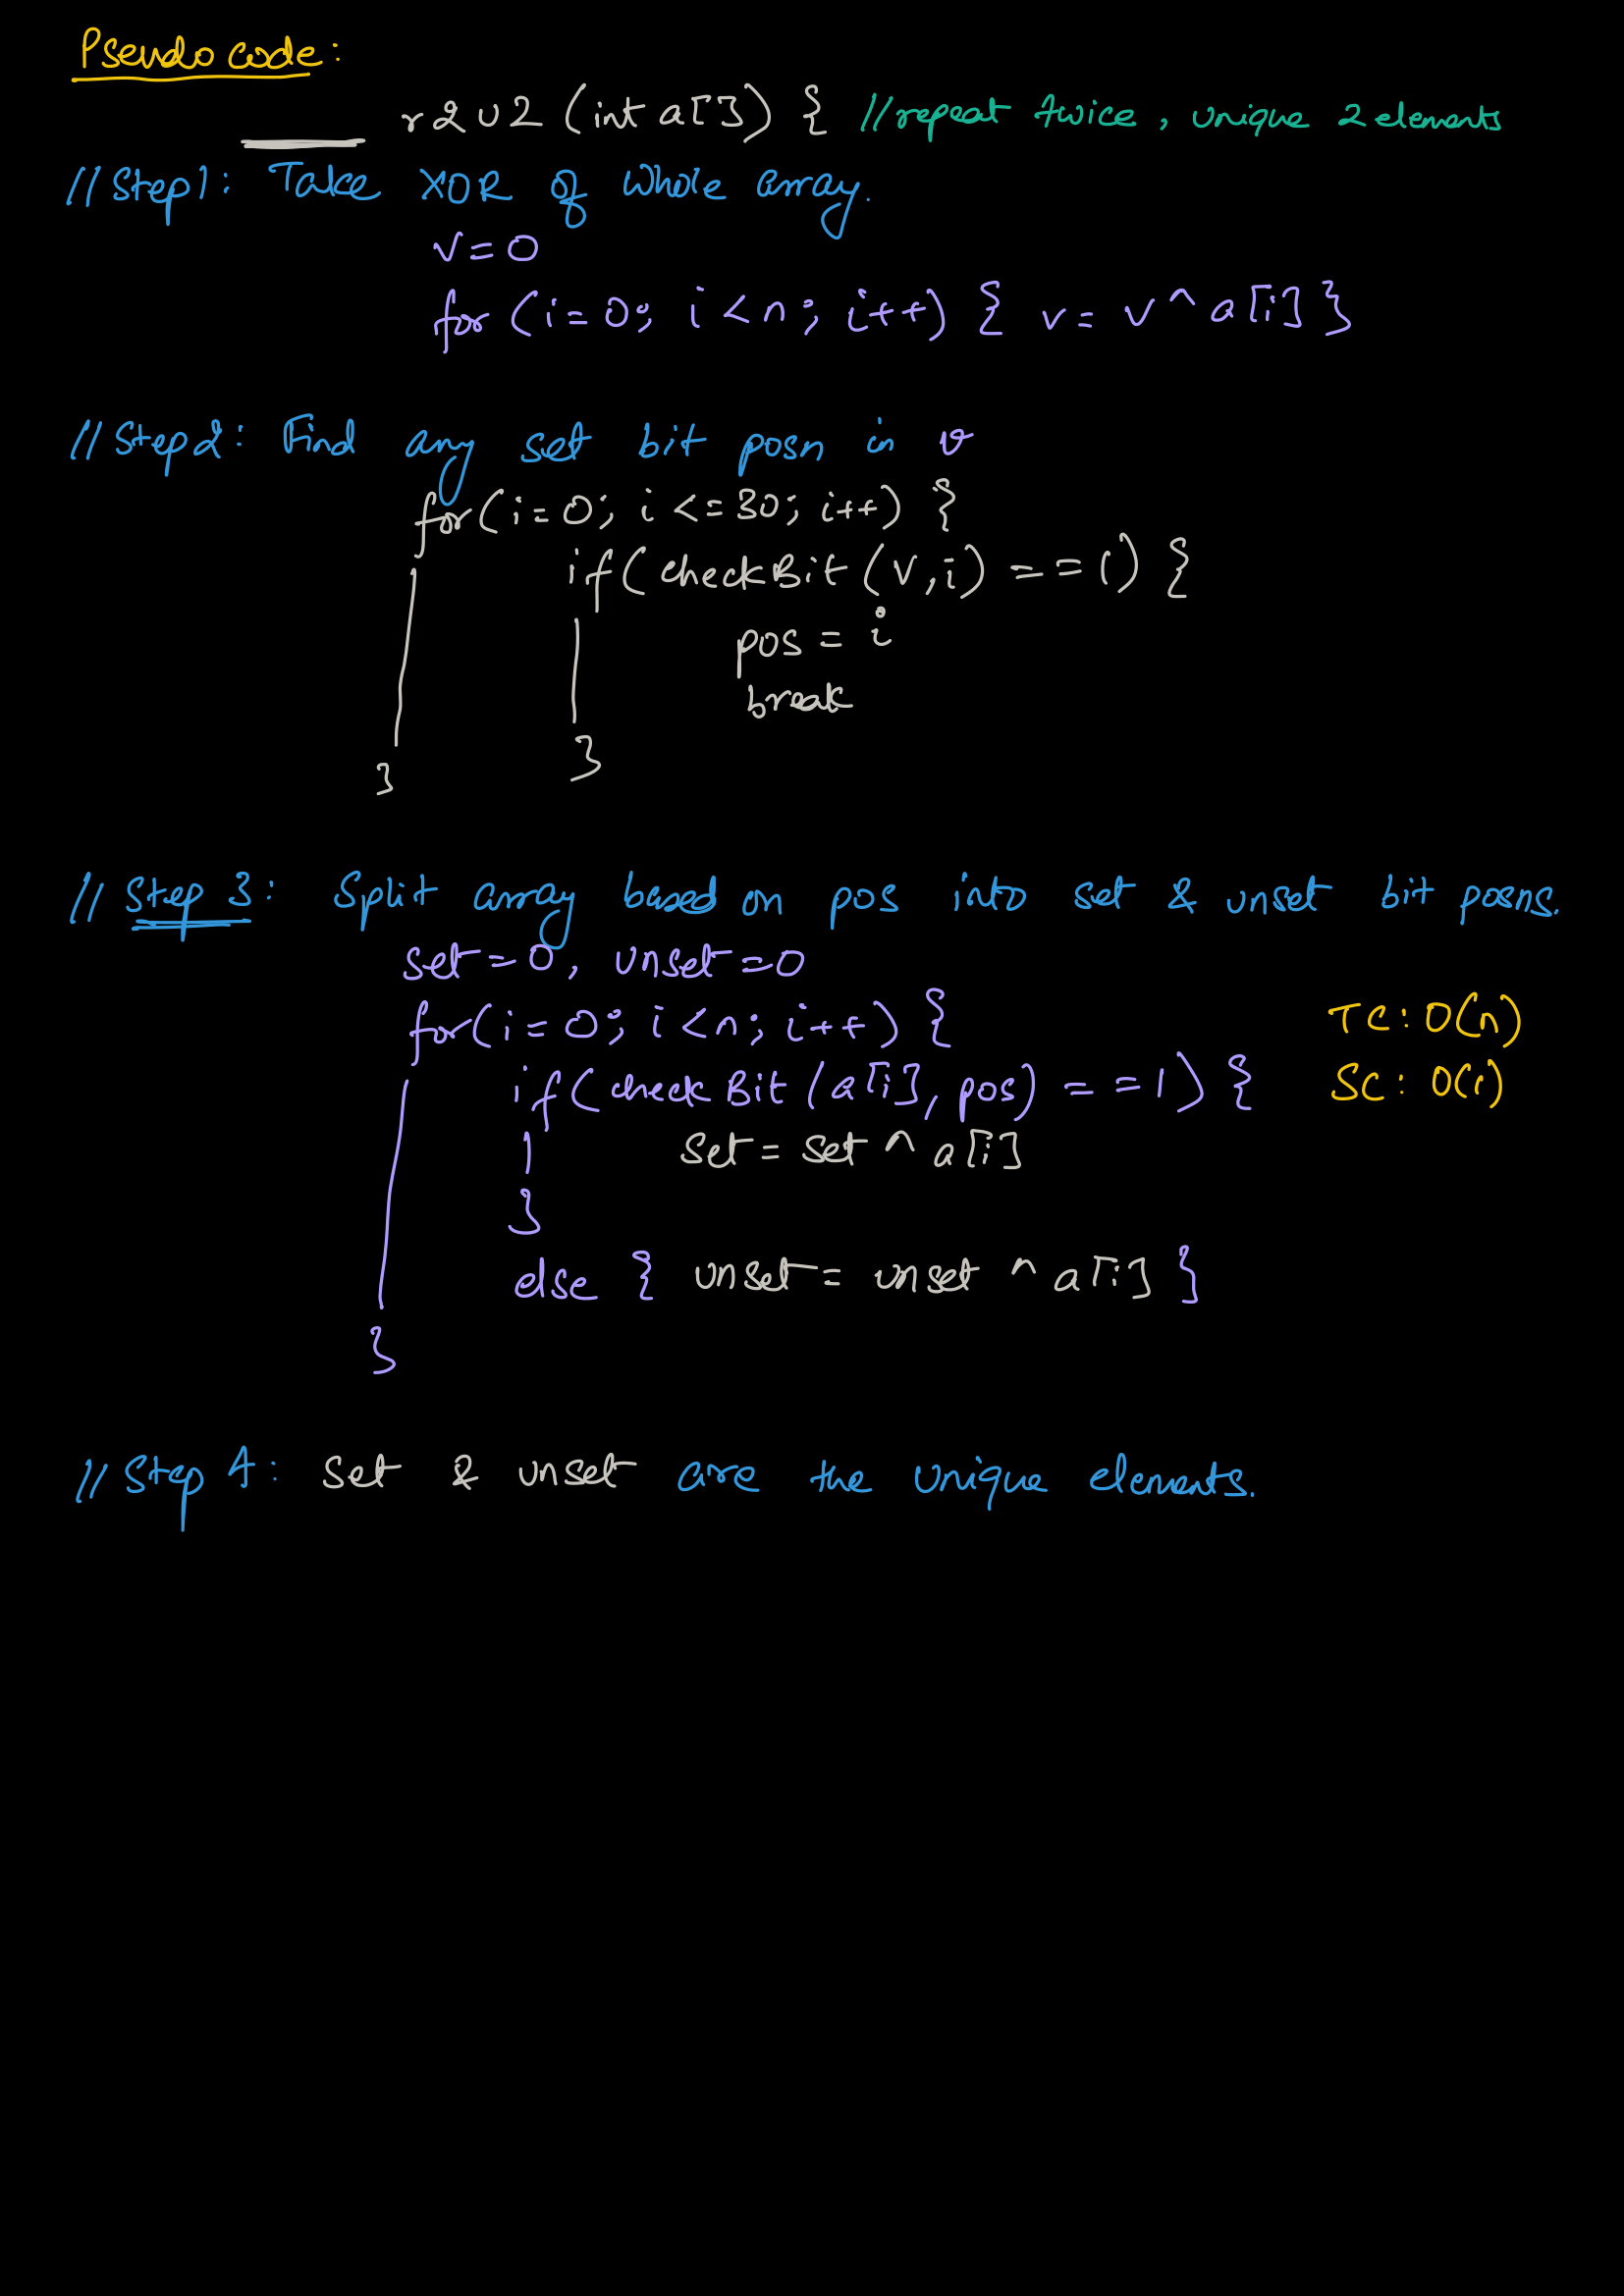 Pseudo code:
r2U2 (int a[]) { //repeat twice, unique 2 elements
//Step1: Take XOR of whole array.
v=0
for (i=0; i<n; i++) { v= v^a[i]}
//Step2: Find any set bit posn in v
for(i=0; i<=30; i++) {
if(checkBit(v,i) ==1) {
pos = i
break
}
}
// Step 3: Split array based on pos into set & unset bit posns.
set=0, unset=0
for(i=0; i<n; i++) {
TC: O(n)
if(checkBit(a[i], pos) ==1) {
SC: O(1)
set= set ^ a[i]
}
else { unset= unset ^ a[i] }
}
//Step 4: set & unset are the unique elements.